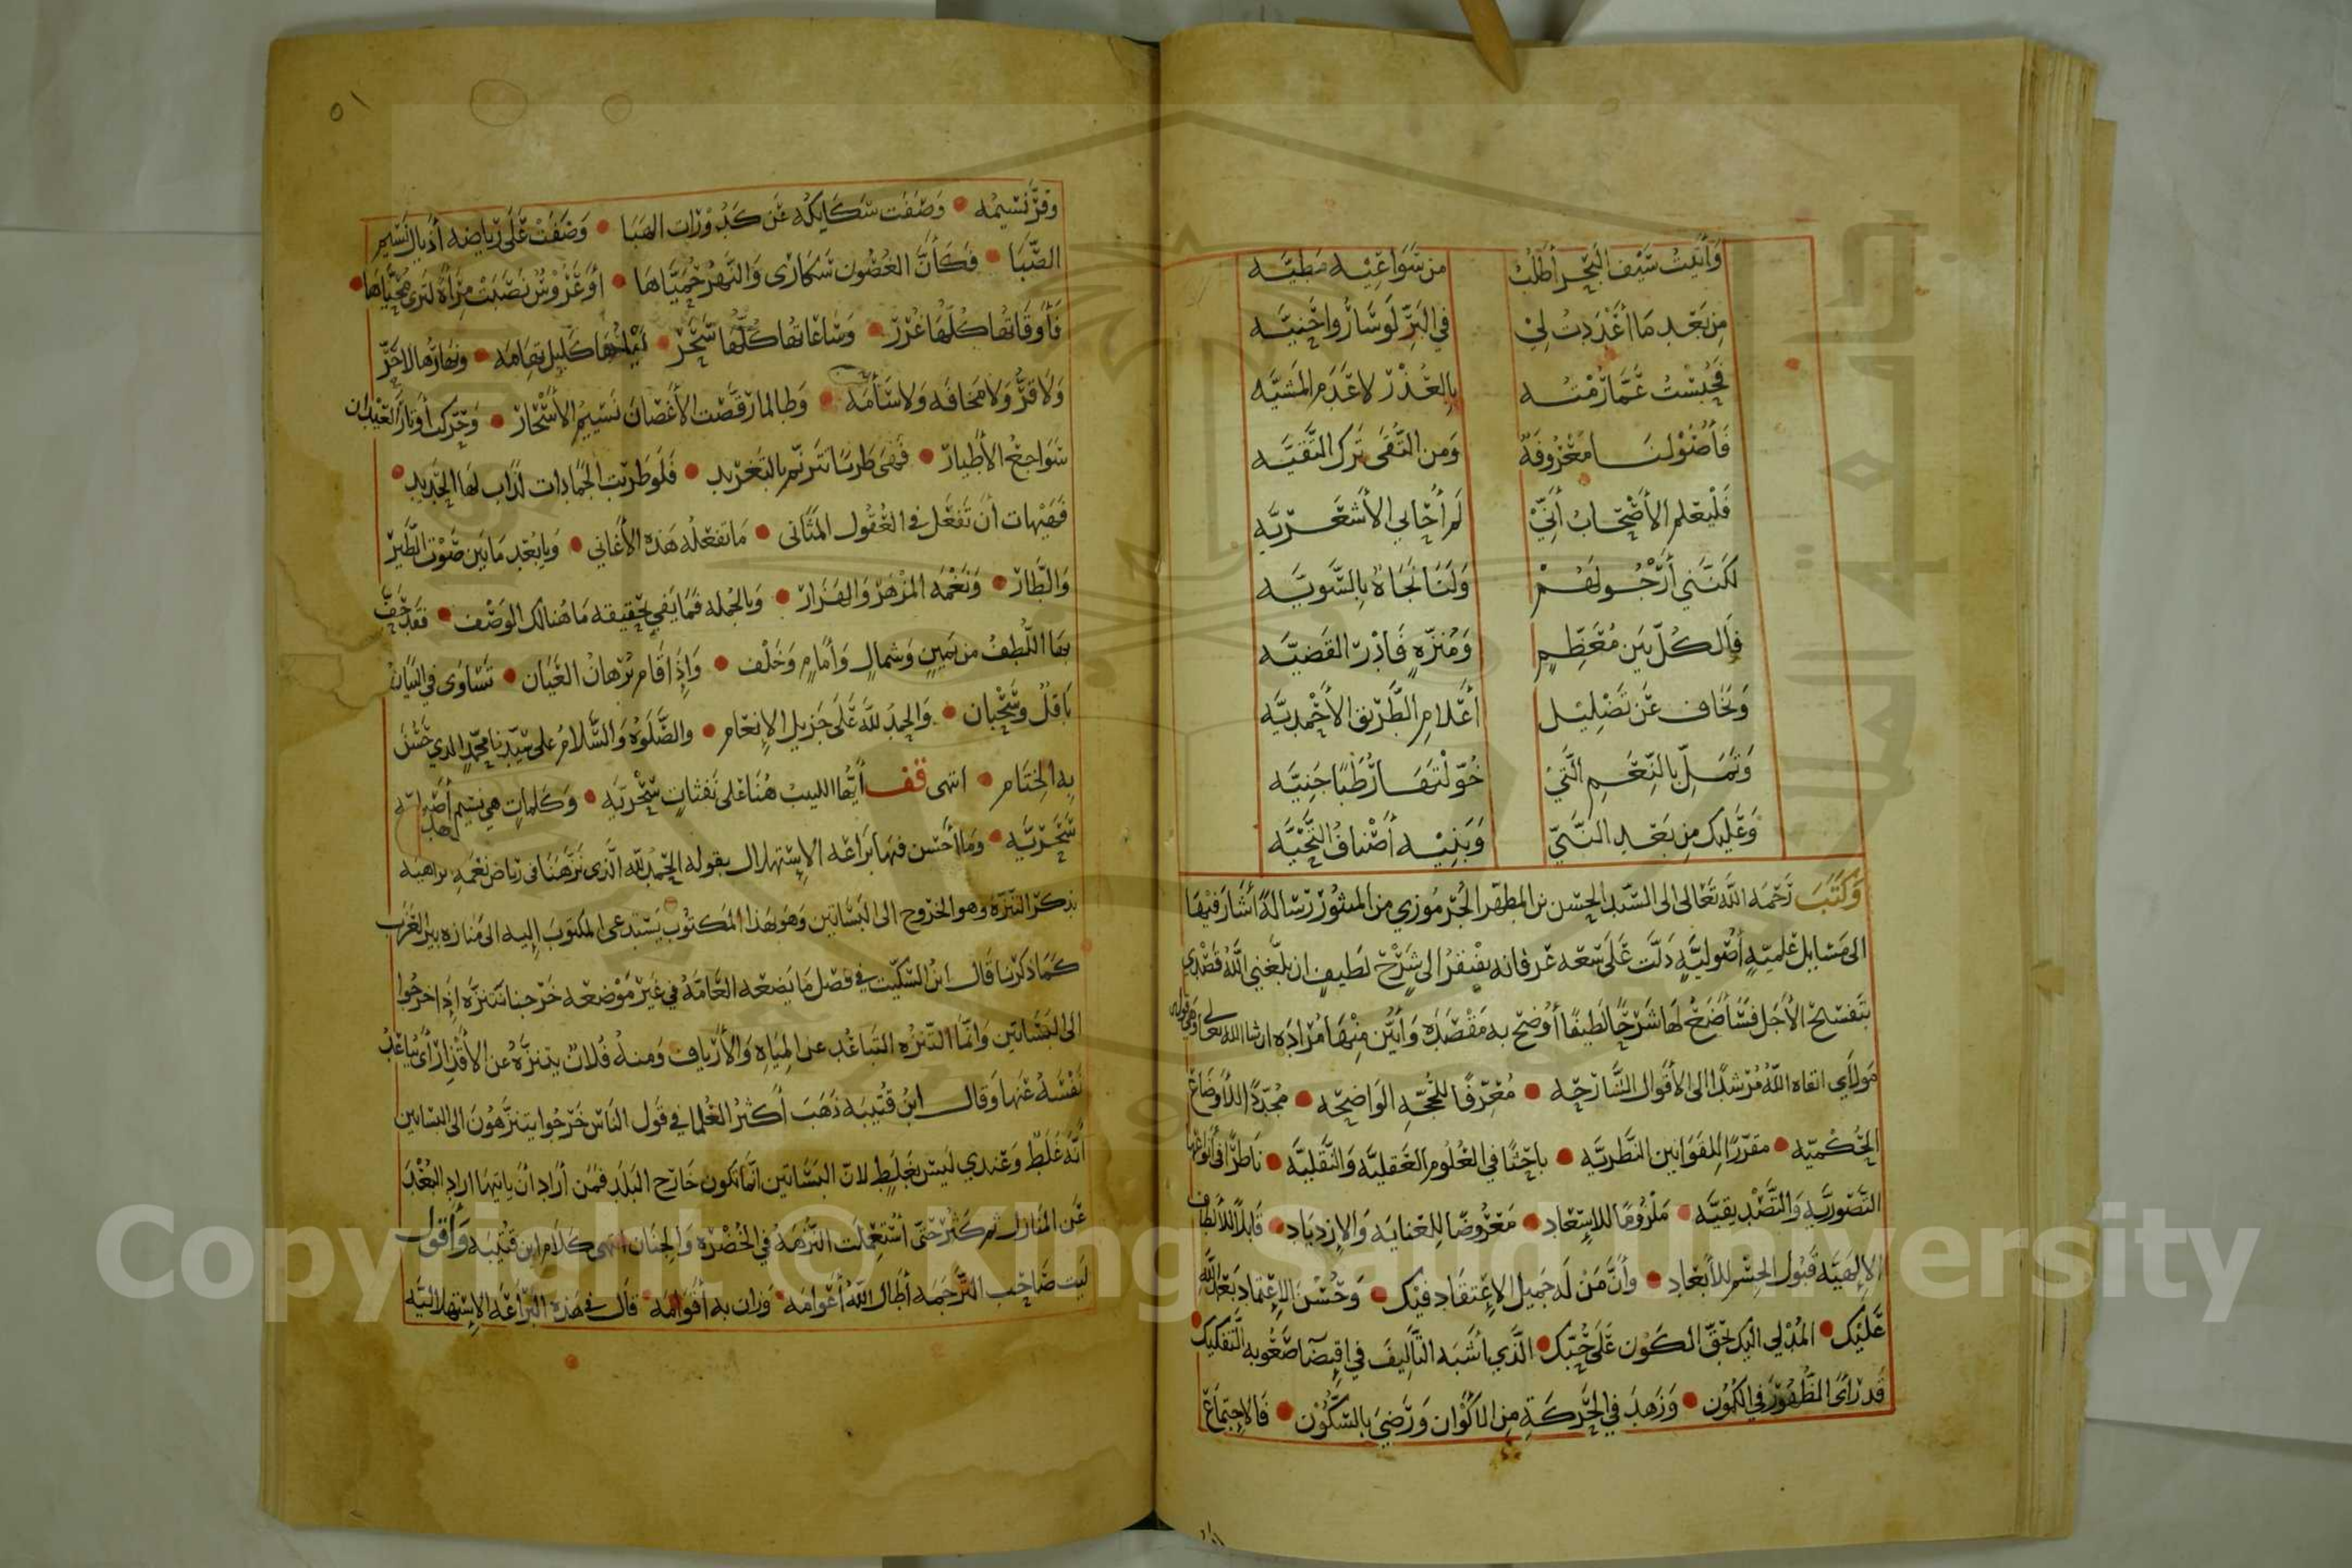 وَأَتَيْتُ سَيْفَ الْبَحْرِ أَطْلُبُ من سَوَاعِيْهِ مَطِيَّه
مِن بَعْدِ مَا أَغْدَدتُ لِيْ في البَرِّ لَوسَارُوا حَنِيَّه
فَحُبِسْتُ عَمَّا رُمْتُه بِالعُذْرِ لا عَدَمِ المَشيَّه
فَأُصُوْلنَا مَعْرُوفَةٌ وَمن التُّقَى تَرك التَّقيَّه
فَلْيَعْلمِ الأَصْحَابُ أَنِّيْ لم أُحَابي الأَشْعَريَّه
لكنَّني أَرْجُو لَهُمْ وَلَنَا نَجَاةً بِالسَّويَّه
فَالكُلّ بَين مُعَظِّمٍ وَمُنَزِّهٍ فَادْرِ القَضيَّه
وَنَخَاف عَن تَضْلِيْل أَعْلامِ الطَّرِيْق الأَحْمَديَّه
وَتَمَلَّ بِالنِّعَمِ الَّتيْ خُوِّلْتَهَا رُطَبًا جَنِيَّه
وَعَليكَ مِن بَعْدِ النَّبيّ وَبَنِيْهِ أَصْنافُ التَّحيَّه
وَكَتَبَ رَحْمَه اللَّه تَعَالى الى السَّيِّد الحَسَن بن المطهَّر الجُرْمُوزي من المنثُوْر رِسَالةً أَشَارَ فيْهَا
الى مَسَايل عَلميّةٍ أُصُوليَّةٍ دَلَّت عَلَى سعَة عرْفانه يفْتقرُ الى شَرْحٍ لَطيفٍ ان بلَّغني اللَّهُ قَصْدي
بتَفْسيح الأَجَل فسَأَضَعُ لهَا شَرْحًا لطيفًا أُوضح به مَقْصَدَه وَأُبَيِّن مِنْهَا مُرَادَه ان شا الله تعالى وهي قوله
مَولاي ابقاه اللَّهُ مُرْشدًا الى الأَقْوال الشَّارحَه • مُعَرِّفًا للحُجَّه الوَاضِحَه • مجُدِّدًا للأَوضَاعْ
الحُكْميّه • مقرِّرًا للقَوَانين النَّظريَّه • باحثًا في العُلُوم العَقليَّه وَالنَّقليَّه • نَاظرًا في أَنواعها
التَّصَوُّريَّه وَالتَّصْديقيَّه • مَلْزُومًا للاسْعَاد • مَعْرُوضًا للعنايَه وَالازديَاد • قَابلًا للأَلطَاف
الإلهيَّه قَبُولَ الجسْم للأَبْعَاد • وأَنَّ مَنْ لَه جَميل الاعْتقَاد فيْك • وَحُسْنُ الاعْتمَاد بَعْد اللَّه
عَلَيْك • المُدْلي اليك بحَقّ الكَوْن عَلَى حُبّك • الَّذي اشْبَه التَّأليفَ في اقتضآ صُعُوبة التَّفكيك •
قَد رَأَى الظُّهُوْرَ في الكُمُون • وَزَهَدَ في الحَرَكَةِ مِن الأكْوَان وَرَضيَ بالسُّكُوْن • فَالاجتمَاعْ
٥١
وَقرَّ نَسيمُه • وَصَفَت سَكَايكُه عَن كَدُوْرَات الهَبَا • وَضَفَتْ عَلَى رِيَاضه أَذيال نَسيم
الصَّبَا • فكَأَنَّ الغصُون سُكَارَى وَالنَّهرُ حُمَيَّاهَا • أَو عَرُوسٌ نَصَبَتْ مِرْأةً لترى مُحَيَّاهَا •
فَأَوقَاتها كُلّهَا غُرَر • وَسَاعَاتهَا كُلّهَا سَحَرْ • لَيْلُهَا كَليل تِهَامَه • وَنهَارُها لاحَرَّ
وَلا قرَّ وَلا مخَافَه وَلا سَأمَه • وَطالما رَقَّصَت الأَغْصَان نَسيمُ الأَسْحَار • وَحَرَّكت أَوتَارَ العيْدَان
سَوَاجعُ الأَطْيار • فَهيَ طرَبًا تترنّم بالتَغريد • فَلَو طَربَت الجَمادَات لَذَاب لهَا الحَديد •
فَهَيْهات أن تَفْعَل في العُقُول المَثَاني • مَا تفعلُه هَذه الأَغاني • وَيا بُعْد مَا بَين صَوْت الطَّيرْ
وَالطَّار • وَنَغْمَه المِزْهَر وَالهَزَار • وَبالجُمله فمَا يَفي بحقيقه مَا هُنَالك الوَصْف • فقَد حَفَّ
بهَا اللُّطفُ من يَمينٍ وَشمالٍ وَأَمَامٍ وَخَلْف • وَاذَا قَام برْهان العيَان • تَسَاوَى في البَيَان
بَاقلٌ وسَحْبَان • وَالحمدُ للَّه عَلَى جَزيل الإنعَام • والصَّلَوة وَالسَّلام على سَيّدنا محمّدٍ الذي حَسُنَ
به الختَام • انتهى قف أيُّهَا اللبيبُ هُنَا عَلى نَفَثاتٍ سحْريَّه • وَكَلماتٍ هي نسيم
سَحَريَّه • وَمَا أحْسن فيهَا بَرَاعَه الإسْتهلال بقوله الحَمْدُ للَّه الَّذي نَزَّهَنَا في رياض نعَمه
بذكر التنزّه وهو الخروج الى البَسَاتين وَهوَ بهَذا المكتُوب يَسْتدعي المكتوبَ اليه الى مَنازه بير العَزَب
كَمَا ذكرنا قال ابنُ السّكّيت في فصل مَا يَضعه العَامّة في غَير مَوْضعه خَرَجنا نتنزّه إذا خرجُوا
الى البَسَاتين وَانّما التنزّه التباعُد عن الميَاه وَالأَرياف وَمنه فُلانٌ يتنزَّهُ عن الأقذار أَى يباعدُ
نَفْسَهُ عَنها وَقال ابنُ قُتيبَه ذَهَبَ أَكثرُ العُلمَا في قَول النَاس خَرَجُوا يتنزَّهُونَ الى البسَاتين
أَنَّهُ غَلَطٌ وَعندي لَيسَ بغَلَطٍ لانّ البَسَاتين انّمَا تكون خَارج البَلَد فَمَن أَرَاد أن ياتيَهَا اراد البُعْدَ
عَن المنَازل ثم كثُر حَتّى أُستُعملَت النّزْهَةُ في الخُضْرَه وَالجنَان انتهى كَلام ابن قتيبَه وَأقول
ليت صَاحب التَّرجَمَه أَطَال اللَّهُ أَعْوامَه • وَزان به أقوَامَه • قال في هَذه البرَاعَه الاستهلاليَّه